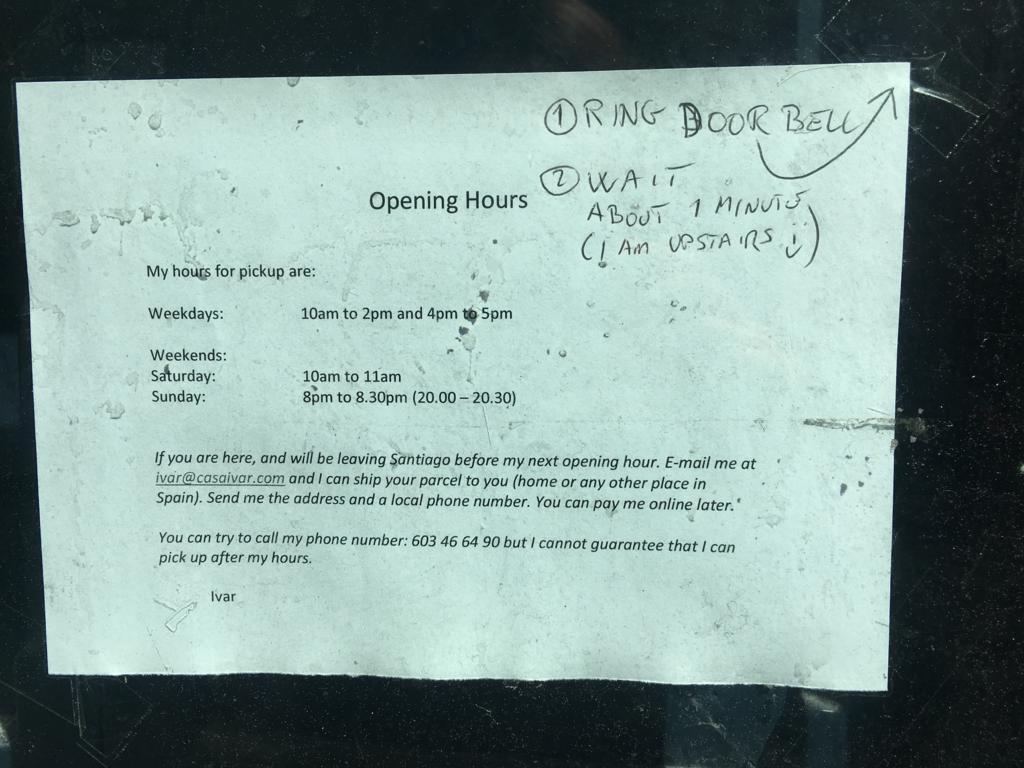 ① RING DOOR BELL
② WAIT
ABOUT 1 MINUTE
(I AM UPSTAIRS :))
Opening Hours
My hours for pickup are:
Weekdays: 10am to 2pm and 4pm to 5pm
Weekends:
Saturday: 10am to 11am
Sunday: 8pm to 8.30pm (20.00 – 20.30)
If you are here, and will be leaving Santiago before my next opening hour. E-mail me at
ivar@casaivar.com and I can ship your parcel to you (home or any other place in
Spain). Send me the address and a local phone number. You can pay me online later.
You can try to call my phone number: 603 46 64 90 but I cannot guarantee that I can
pick up after my hours.
Ivar